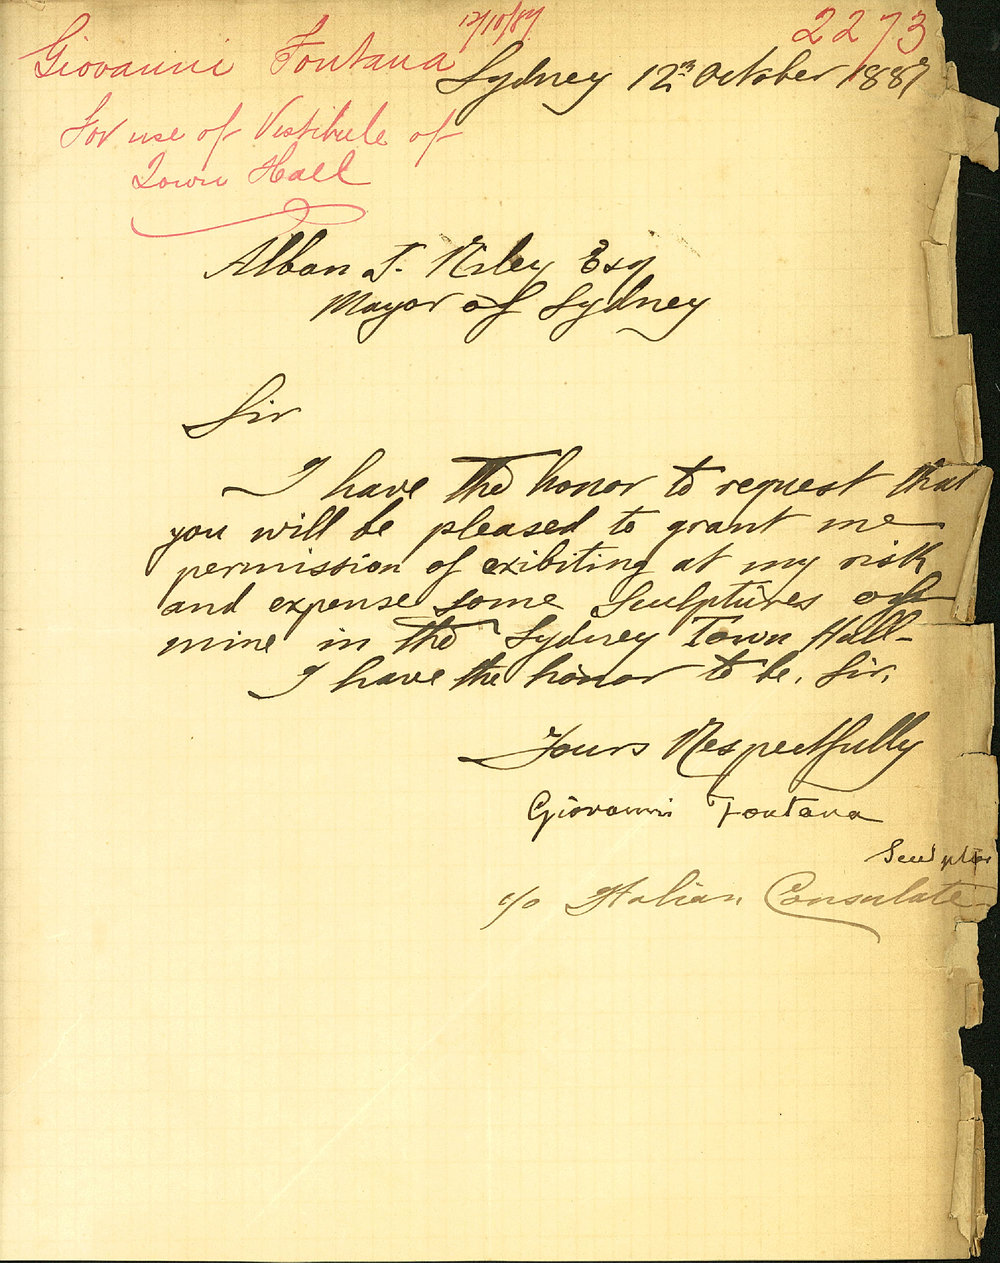 12/10/87
2273
Giovanni Fontana
Sydney 12th October 1887
For use of Vestibule of
Town Hall
Alban J. Riley Esq
Mayor of Sydney
Sir
I have the honor to request that
you will be pleased to grant me
permission of exibiting at my risk
and expense some Sculptures of
mine in the Sydney Town Hall-
I have the honor to be, Sir,
Yours Respectfully
Giovanni Fontana
Sculptor
c/o Italian Consulate